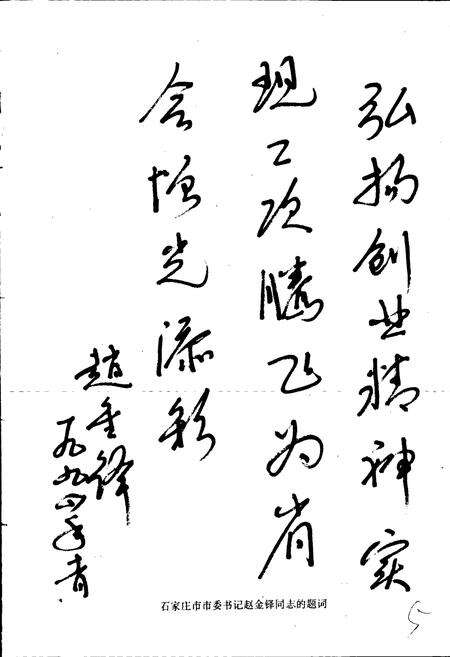 弘扬创业精神实
现二次腾飞为省
会增光添彩
赵金铎
一九九四年春
石家庄市市委书记赵金铎同志的题词
5